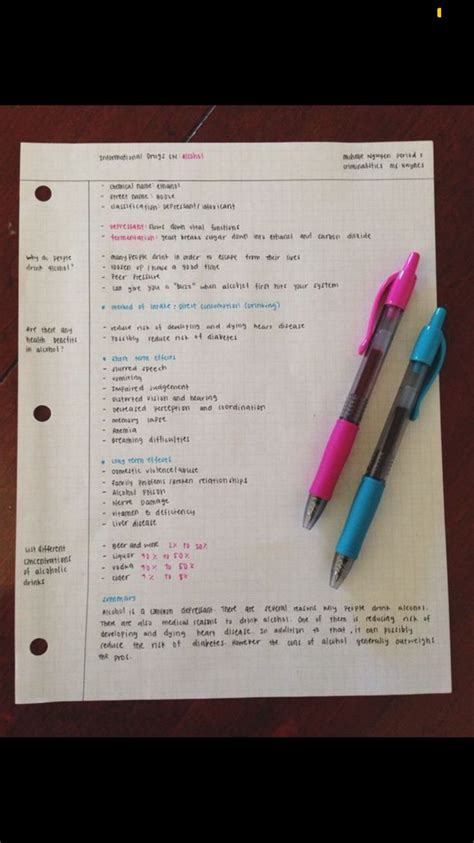 Informational Drugs on: Alcohol
Michelle Nguyen Period 1
Criminalistics Ms. Haynes
- Chemical name: ethanol
- Street name: Booze
- Classification: Depressant/ Intoxicant
- Depressant: slows down vital functions
- fermentation: yeast breaks sugar down into ethanol and carbon dioxide
Why do people
drink alcohol?
- many people drink in order to escape from their lives
- loosen up / have a good time
- Peer pressure
- can give you a "buzz" when alcohol first hits your system
* method of intake: direct consumption (drinking)
Are there any
health benefits
in alcohol?
- reduce risk of developing and dying heart disease
- Possibly reduce risk of diabetes
* Short term effects
- slurred speech
- vomiting
- Impaired judgement
- Distorted vision and hearing
- Decreased perception and coordination
- memory lapse
- Anemia
- Breathing difficulties
* Long term effects
- Domestic violence/abuse
- family problems /broken relationships
- Alcohol poison
- Nerve Damage
- vitamin deficiency
- Liver disease
List different
concentrations
of alcoholic
drinks
- Beer and wine 2% to 20%
- Liquor 40% to 50%
- vodka 40% to 50%
- Cider to 8%
Summary
Alcohol is a common depressant. There are several reasons why people drink alcohol.
There are also medical reasons to drink alcohol. One of them is reducing risk of
developing and dying heart disease. In addition to that, it can possibly
reduce the risk of diabetes. However the cons of alcohol generally outweighs
the pros.